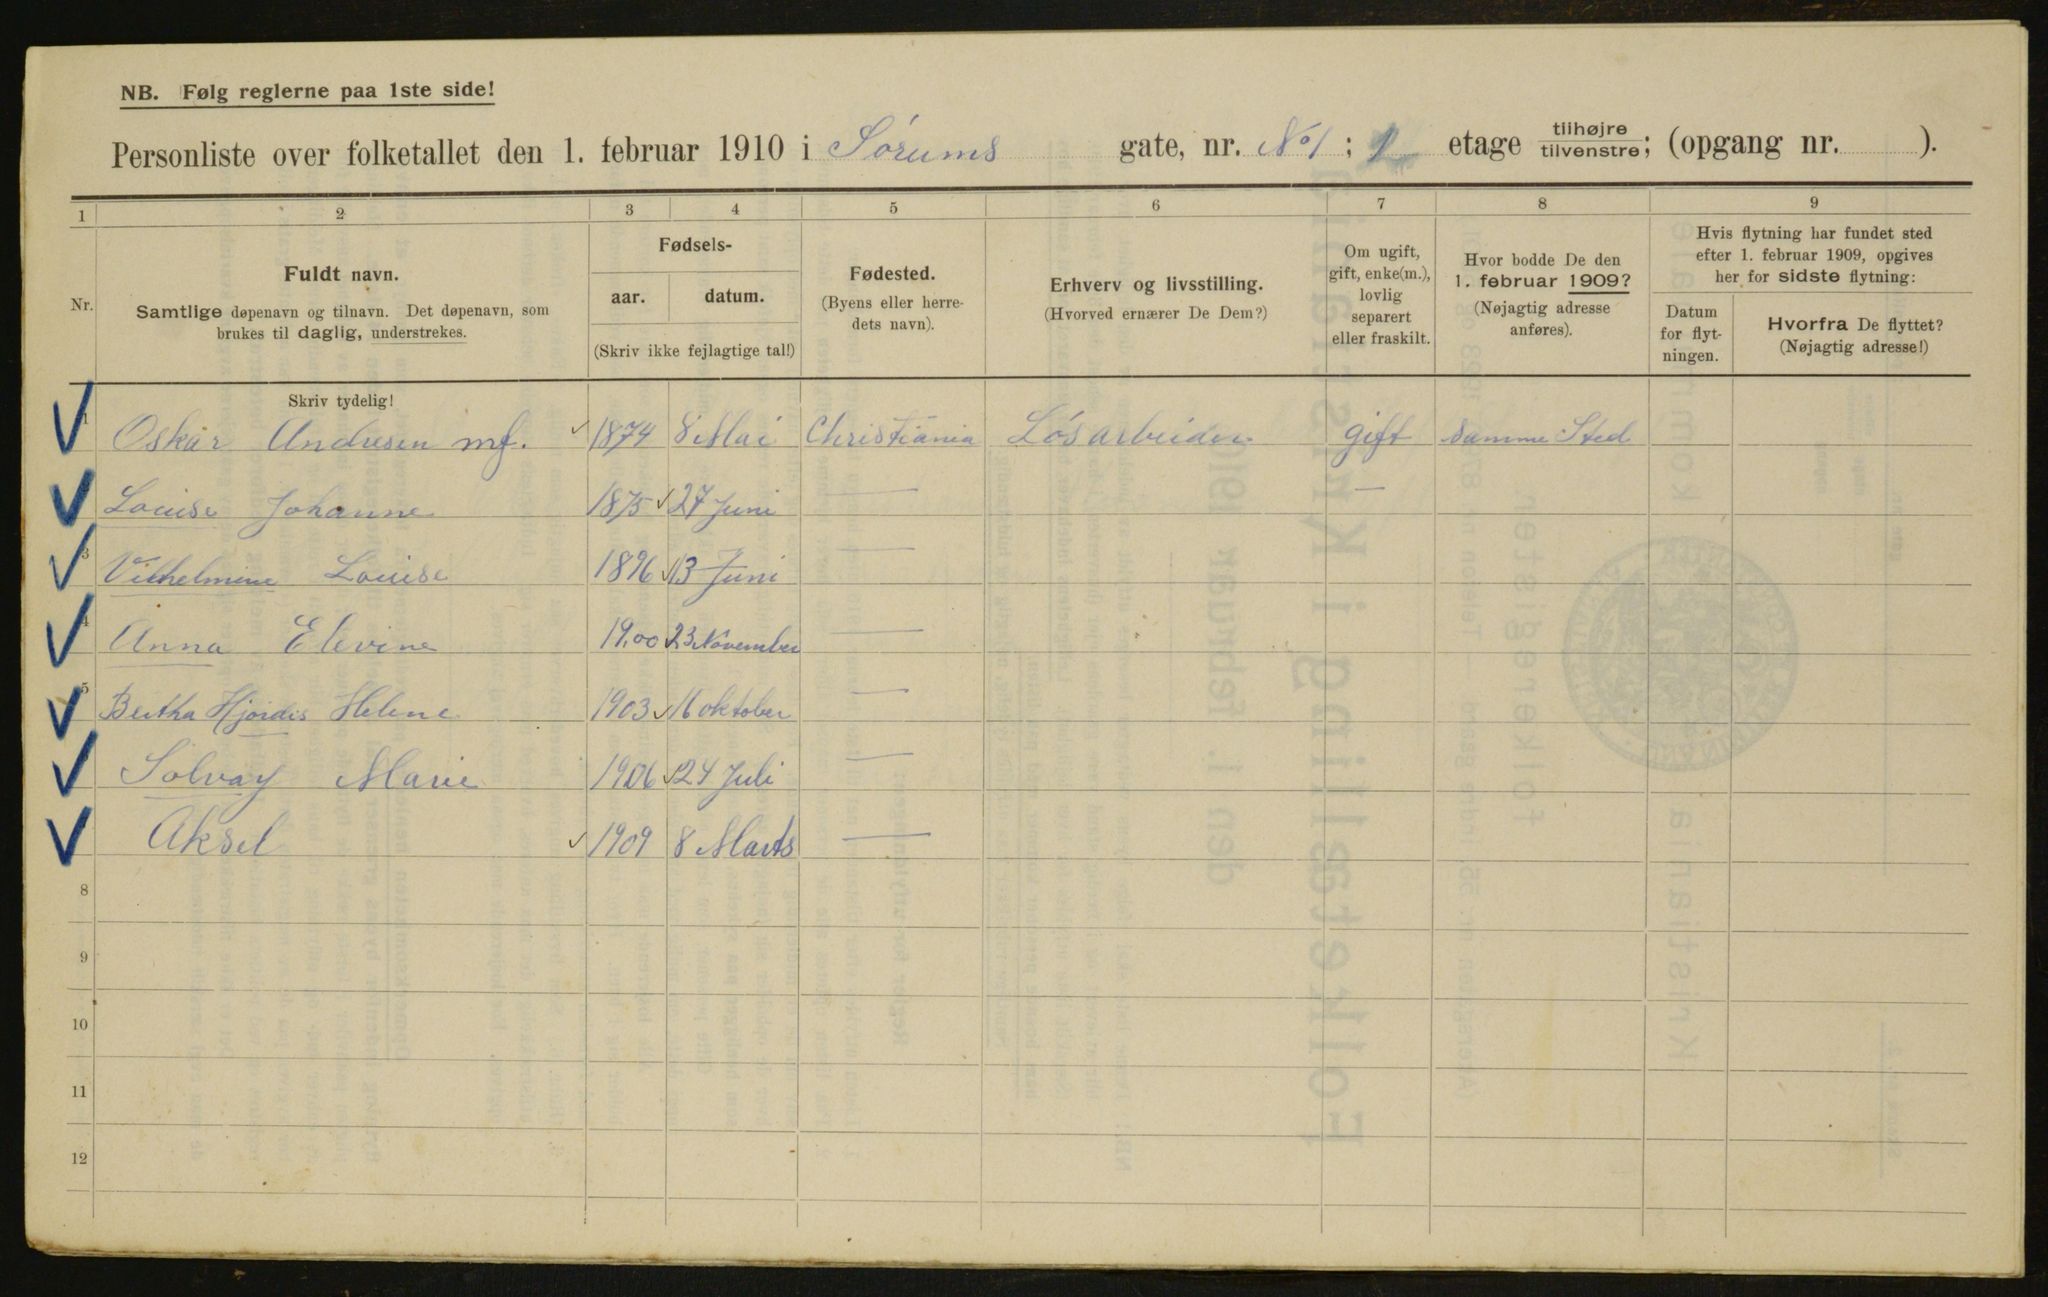 NB. Følg reglerne paa 1ste side!
Personliste over folketallet den 1. februar 1910 i Sørums gate, nr. No 1; 1 etage tilhøjre tilvenstre; (opgang nr. ).
1 2 3 4 5 6 7 8 9
Nr.
Fuldt navn.
Samtlige døpenavn og tilnavn. Det døpenavn, som
brukes til daglig, understrekes.
Fødsels-
aar. datum.
(Skriv ikke fejlagtige tal!)
Fødested.
(Byens eller herre-
dets navn).
Erhverv og livsstilling.
(Hvorved ernærer De Dem?)
Om ugift,
gift, enke(m.),
lovlig
separert
eller fraskilt.
Hvor bodde De den
1. februar 1909?
(Nøjagtig adresse
anføres).
Hvis flytning har fundet sted
efter 1. februar 1909, opgives
her for sidste flytning:
Datum
for flyt-
ningen.
Hvorfra De flyttet?
(Nøjagtig adresse!)
Skriv tydelig!
1 Oskar Andresen mf. 1874 8 Mai Christiania Løsarbeider gift samme Sted
Louise Johanne 1875 27 Juni — —
3 Vilhelmine Louise 1896 13 Juni —
4 Anna Elevine 19.00 23 November —
5 Bertha Hjørdis Helene 1903 16 oktober —
Solvay Marie 1906 24 Juli —
Aksel 1909 8 Marts —
8
9
10
11
12